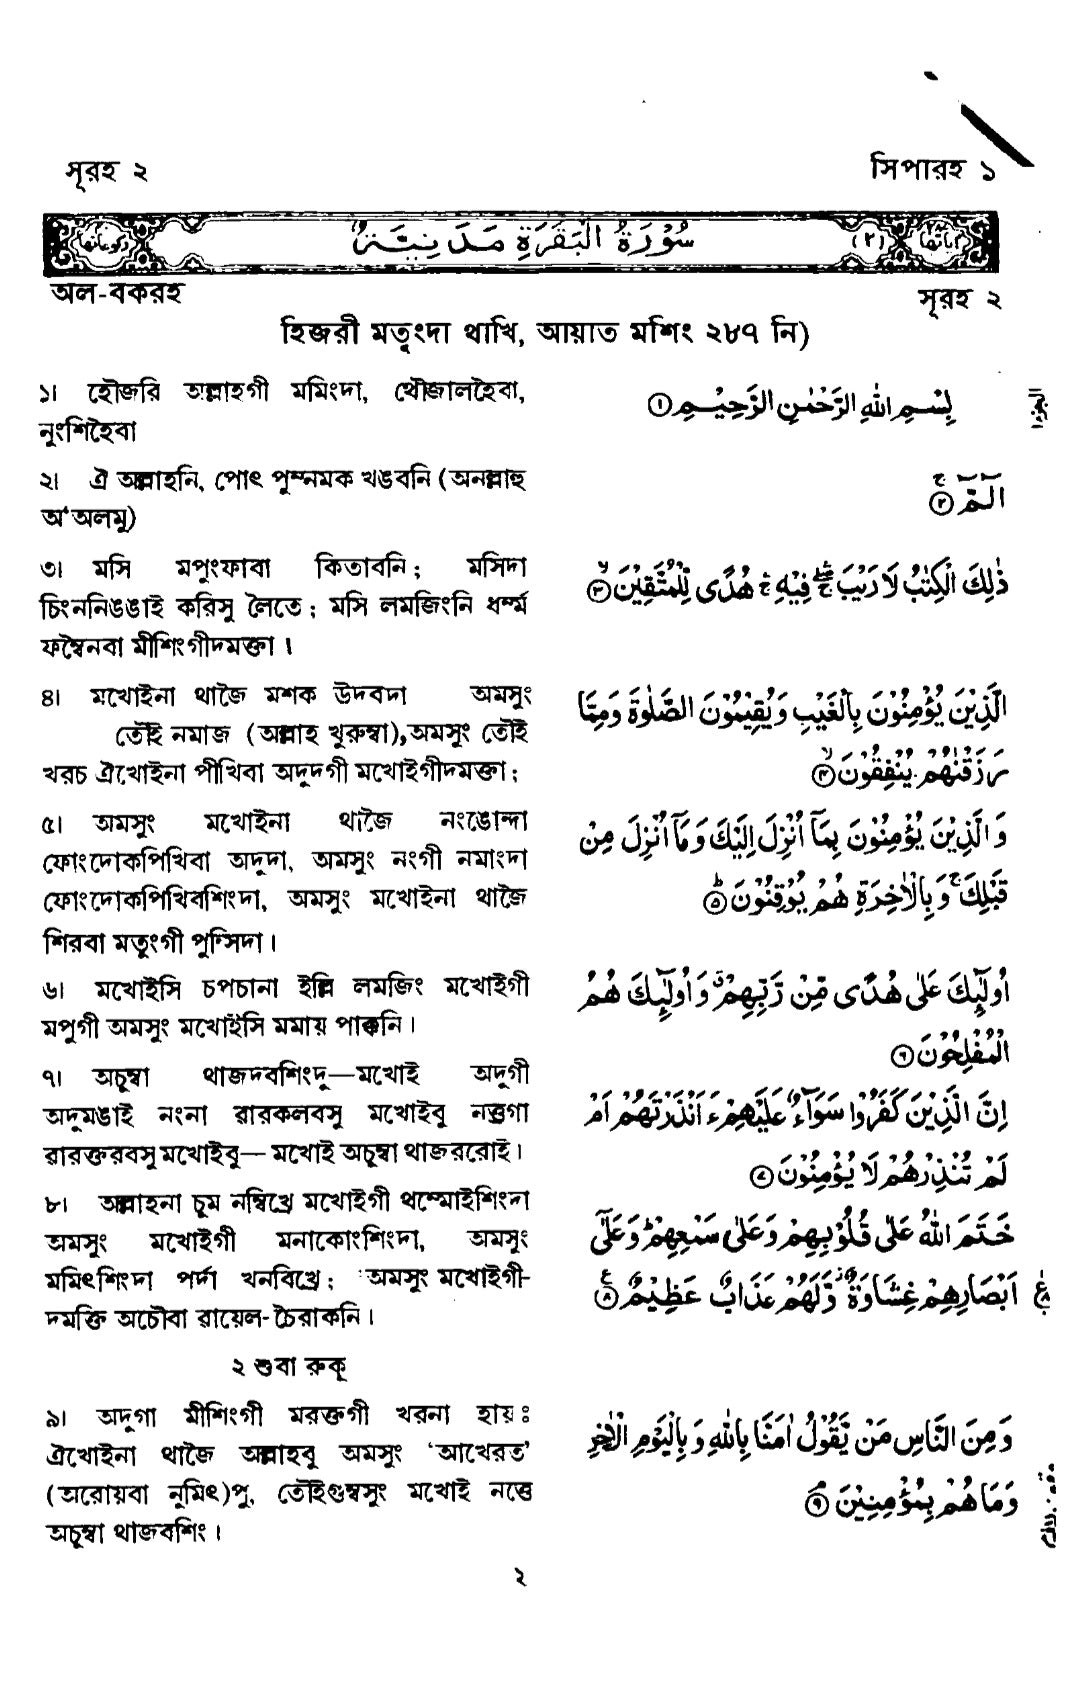 সূরহ ২
সিপারহ ১
سُوْرَةُ الْبَقَرَةِ مَدَنِيَّةٌ
(٢)
অল-বকরহ
সূরহ ২
হিজরী মতুংদা থাখি, আয়াত মশিং ২৮৭ নি)
১। হৌজরি অল্লাহগী মমিংদা, থৌজালহৈবা,
নুংশিহৈবা
২। ঐ অল্লাহনি, পোৎ পুম্নমক খঙবনি (অনল্লাহু
অ‘অলমু)
৩। মসি মপুংফাবা কিতাবনি; মসিদা
চিংননিঙঙাই করিসু লৈতে; মসি লমজিংনি ধর্ম্ম
ফম্বৈনবা মীশিংগীদমক্তা।
৪। মখোইনা থাজৈ মশক উদবদা অমসুং
তৌই নমাজ (অল্লাহ খুরুম্বা), অমসুং তৌই
খরচ ঐখোইনা পীখিবা অদুদগী মখোইগীদমক্তা;
৫। অমসুং মখোইনা থাজৈ নংঙোন্দা
ফোংদোকপিখিবা অদুদা, অমসুং নংগী নমাংদা
ফোংদোকপিখিবশিংদা, অমসুং মখোইনা থাজৈ
শিরবা মতুংগী পুন্সিদা।
৬। মখোইসি চপচানা ইল্লি লমজিং মখোইগী
মপুগী অমসুং মখোইসি মমায় পাকনি।
৭। অচুম্বা থাজদবশিংদু—মখোই অদুগী
অদুমঙাই নংনা ৱারকলবসু মখোইবু নত্ত্রগা
ৱারক্তরবসু মখোইবু— মখোই অচুম্বা থাজররোই।
৮। অল্লাহনা চুম নম্বিখ্রে মখোইগী থম্মোইশিংদা
অমসুং মখোইগী মনাকোংশিংদা, অমসুং
মমিৎশিংদা পর্দা খনবিখ্রে; অমসুং মখোইগী-
দমক্তি অচৌবা ৱায়েল-চৈরাকনি।
২ শুবা রুকূ
৯। অদুগা মীশিংগী মরক্তগী খরনা হায়ঃ
ঐখোইনা থাজৈ অল্লাহবু অমসুং ‘আখেরত’
(অরোয়বা নুমিৎ)পু, তৌইগুম্বসুং মখোই নত্তে
অচুম্বা থাজবশিং।
بِسْمِ اللهِ الرَّحْمٰنِ الرَّحِيْمِ ①
الٓمّٓ ②
ذٰلِكَ الْكِتٰبُ لَا رَيْبَ فِيْهِ هُدًى لِّلْمُتَّقِيْنَ ③
الَّذِيْنَ يُؤْمِنُوْنَ بِالْغَيْبِ وَيُقِيْمُوْنَ الصَّلٰوةَ وَمِمَّا
رَزَقْنٰهُمْ يُنْفِقُوْنَ ④
وَالَّذِيْنَ يُؤْمِنُوْنَ بِمَآ اُنْزِلَ اِلَيْكَ وَمَآ اُنْزِلَ مِنْ
قَبْلِكَ وَبِالْاٰخِرَةِ هُمْ يُوْقِنُوْنَ ⑤
اُولٰٓئِكَ عَلٰى هُدًى مِّنْ رَّبِّهِمْ وَاُولٰٓئِكَ هُمُ
الْمُفْلِحُوْنَ ⑥
اِنَّ الَّذِيْنَ كَفَرُوْا سَوَآءٌ عَلَيْهِمْ ءَاَنْذَرْتَهُمْ اَمْ
لَمْ تُنْذِرْهُمْ لَا يُؤْمِنُوْنَ ⑦
خَتَمَ اللهُ عَلٰى قُلُوْبِهِمْ وَعَلٰى سَمْعِهِمْ وَعَلٰٓى
اَبْصَارِهِمْ غِشَاوَةٌ وَّلَهُمْ عَذَابٌ عَظِيْمٌ ⑧
وَمِنَ النَّاسِ مَنْ يَّقُوْلُ اٰمَنَّا بِاللهِ وَبِالْيَوْمِ الْاٰخِرِ
وَمَا هُمْ بِمُؤْمِنِيْنَ ⑨
২